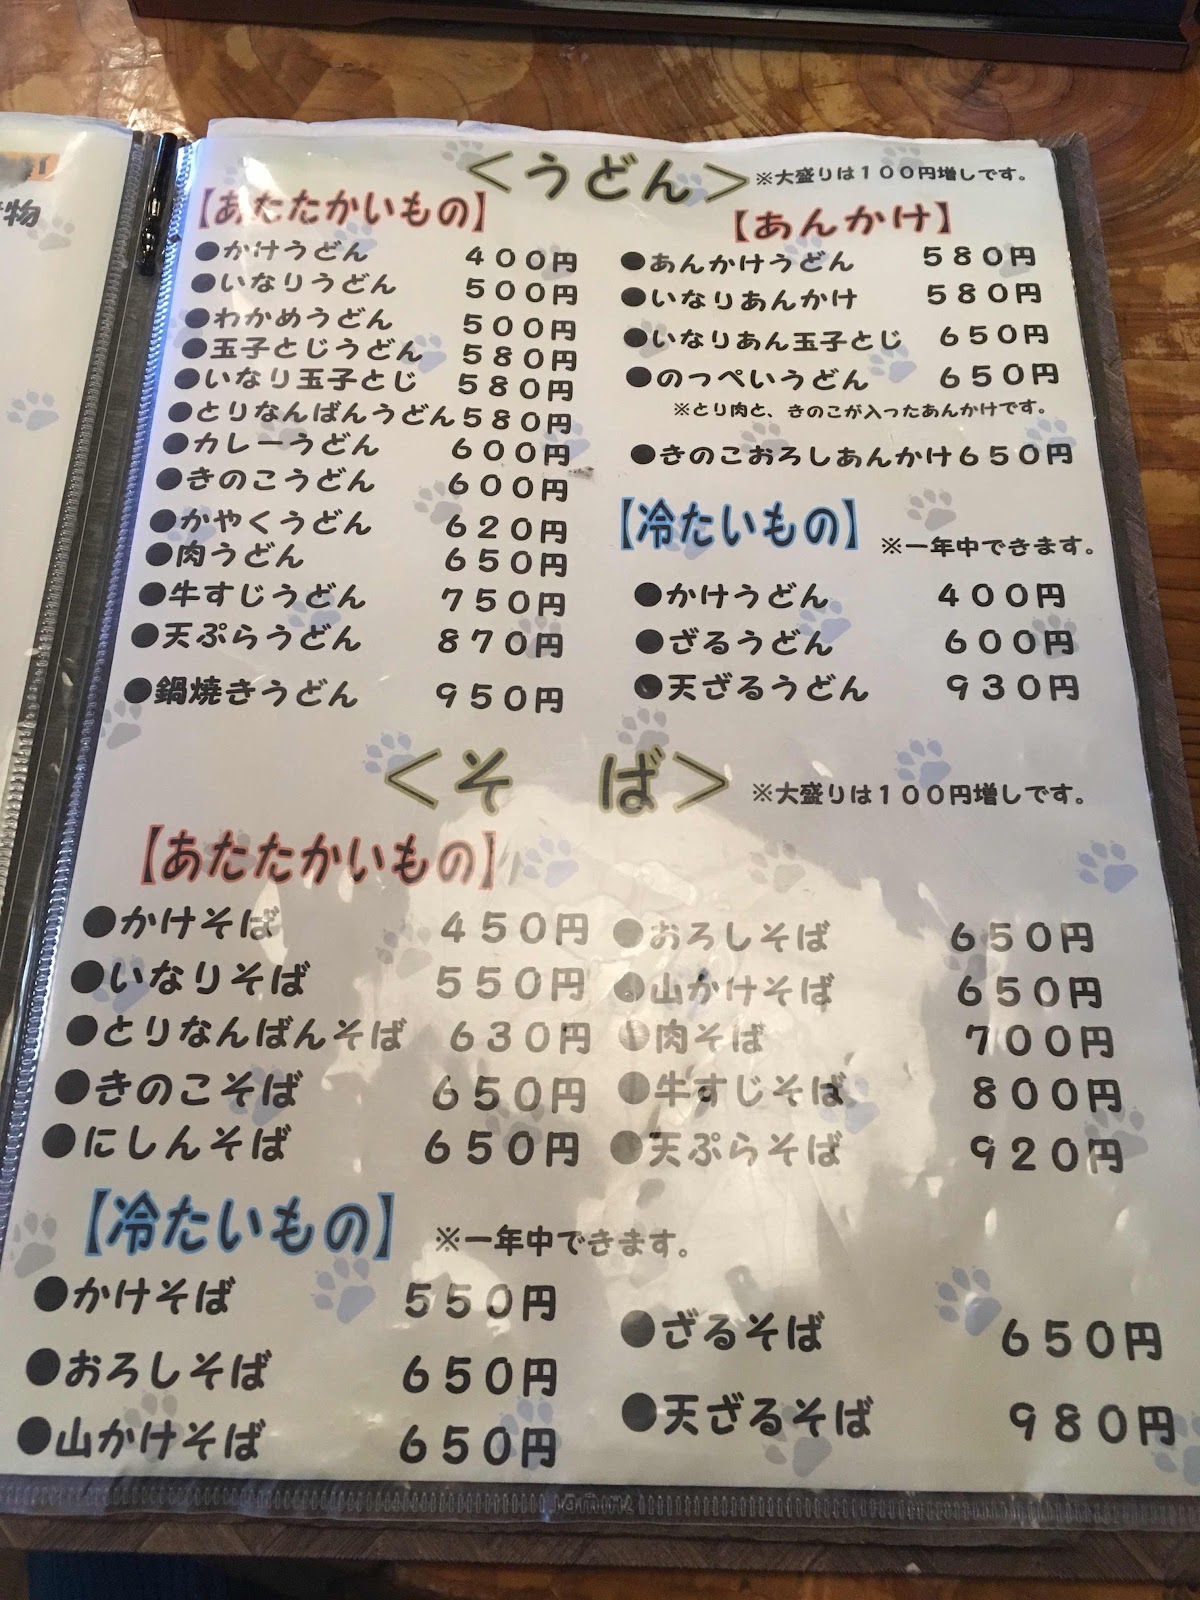 物
＜うどん＞ ※大盛りは１００円増しです。
【あたたかいもの】
●かけうどん ４００円
●いなりうどん ５００円
●わかめうどん ５００円
●玉子とじうどん ５８０円
●いなり玉子とじ ５８０円
●とりなんばんうどん５８０円
●カレーうどん ６００円
●きのこうどん ６００円
●かやくうどん ６２０円
●肉うどん ６５０円
●牛すじうどん ７５０円
●天ぷらうどん ８７０円
●鍋焼きうどん ９５０円
【あんかけ】
●あんかけうどん ５８０円
●いなりあんかけ ５８０円
●いなりあん玉子とじ ６５０円
●のっぺいうどん ６５０円
※とり肉と、きのこが入ったあんかけです。
●きのこおろしあんかけ６５０円
【冷たいもの】 ※一年中できます。
●かけうどん ４００円
●ざるうどん ６００円
●天ざるうどん ９３０円
＜そ ば＞ ※大盛りは１００円増しです。
【あたたかいもの】
●かけそば ４５０円
●いなりそば ５５０円
●とりなんばんそば ６３０円
●きのこそば ６５０円
●にしんそば ６５０円
●おろしそば ６５０円
●山かけそば ６５０円
●肉そば ７００円
●牛すじそば ８００円
●天ぷらそば ９２０円
【冷たいもの】 ※一年中できます。
●かけそば ５５０円
●おろしそば ６５０円
●山かけそば ６５０円
●ざるそば ６５０円
●天ざるそば ９８０円